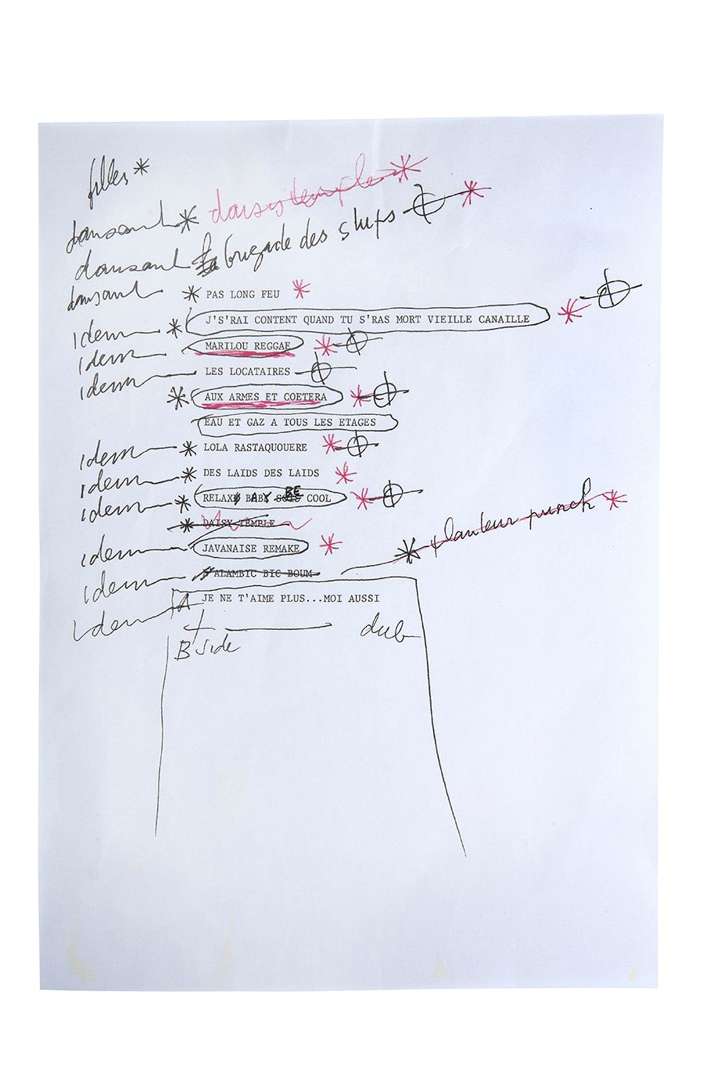 filles *
dansant * daisy temple *
dansant la brigade des stups *
dansant * PAS LONG FEU *
idem * J'S'RAI CONTENT QUAND TU S'RAS MORT VIEILLE CANAILLE *
idem MARILOU REGGAE *
idem LES LOCATAIRES
* AUX ARMES ET COETERA *
EAU ET GAZ A TOUS LES ETAGES
idem * LOLA RASTAQUOUERE *
idem * DES LAIDS DES LAIDS *
idem * RELAX BABY BE COOL *
* DAISY TEMPLE
idem JAVANAISE REMAKE *
idem ALAMBIC BIC BOUM * planteur punch *
idem A JE NE T'AIME PLUS...MOI AUSSI
B side dub